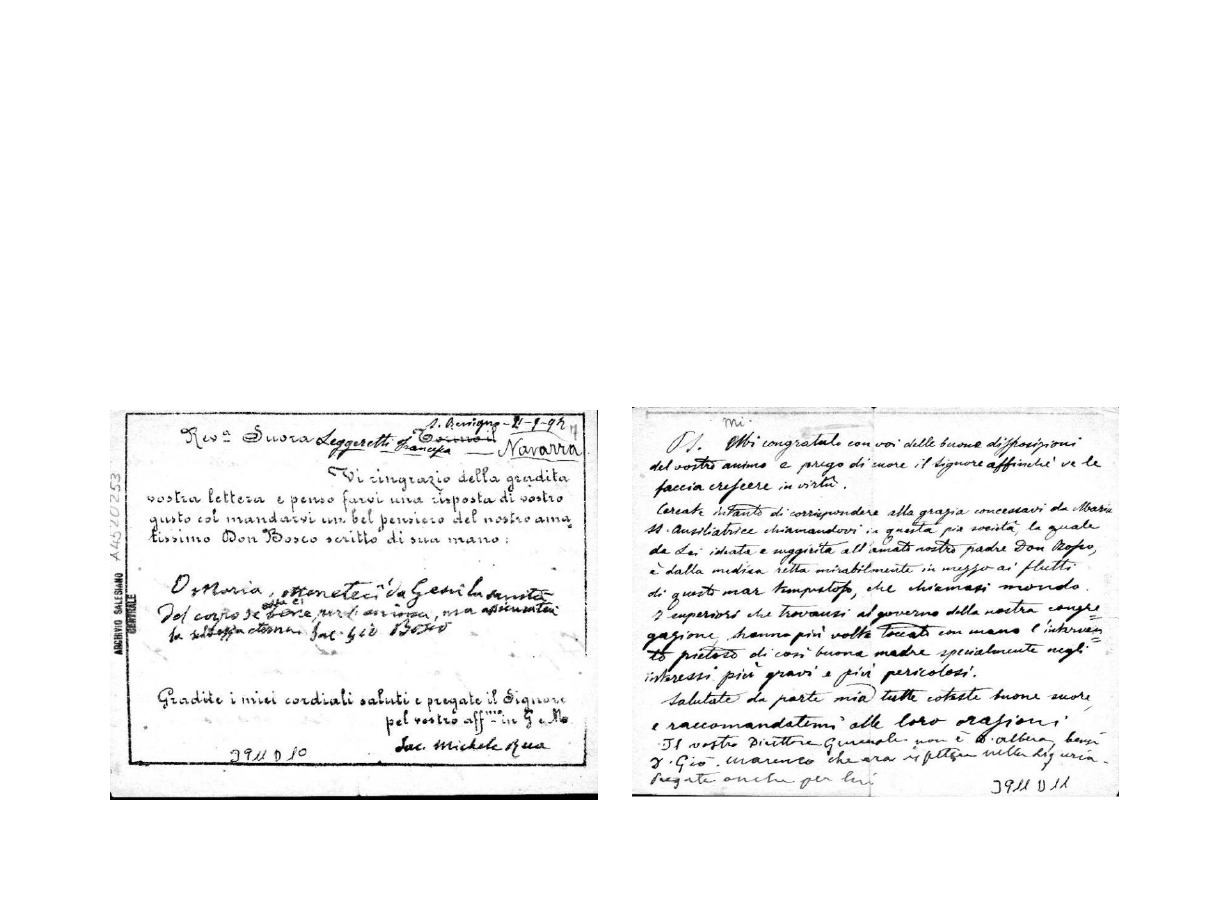 S. Benigno - 21-9-92
Rev.a Suora Leggeretti Francesca
Navarra
Vi ringrazio della gradita
vostra lettera e penso farvi una risposta di vostro
gusto col mandarvi un bel pensiero del nostro ama
tissimo Don Bosco scritto di sua mano:
O Maria, otteneteci da Gesù la sanità
del corpo se essa è bene per l'anima, ma assicurateci
la salvezza eterna. Sac. Gio Bosco
Gradite i miei cordiali saluti e pregate il Signore
pel vostro aff.mo in G e M
Sac. Michele Rua
3911 D 10
A4520253
ARCHIVIO SALESIANO
CENTRALE
mi
PS. Mi congratulo con voi delle buone disposizioni
del vostro animo e prego di cuore il Signore affinché ve le
faccia crescere in virtù.
Cercate intanto di corrispondere alla grazia concessavi da Maria
SS. Ausiliatrice chiamandovi in questa pia società, la quale
da Lei ideata e suggerita all'amato nostro padre Don Bosco,
è dalla medesa retta mirabilmente in mezzo ai flutti
di questo mar tempestoso, che chiamasi mondo.
I superiori che trovansi al governo della nostra congre=
gazione, hanno più volte toccato con mano l'interven=
to pietoso di così buona madre specialmente negli
interessi più gravi e più pericolosi.
Salutate da parte mia tutte coteste buone suore,
e raccomandatemi alle loro orazioni
Il vostro Direttore Generale non è D. Albera, bensì
D. Gio. Marenco che era ispettore nella Liguria.
Pregate anche per lui
3911 D 11